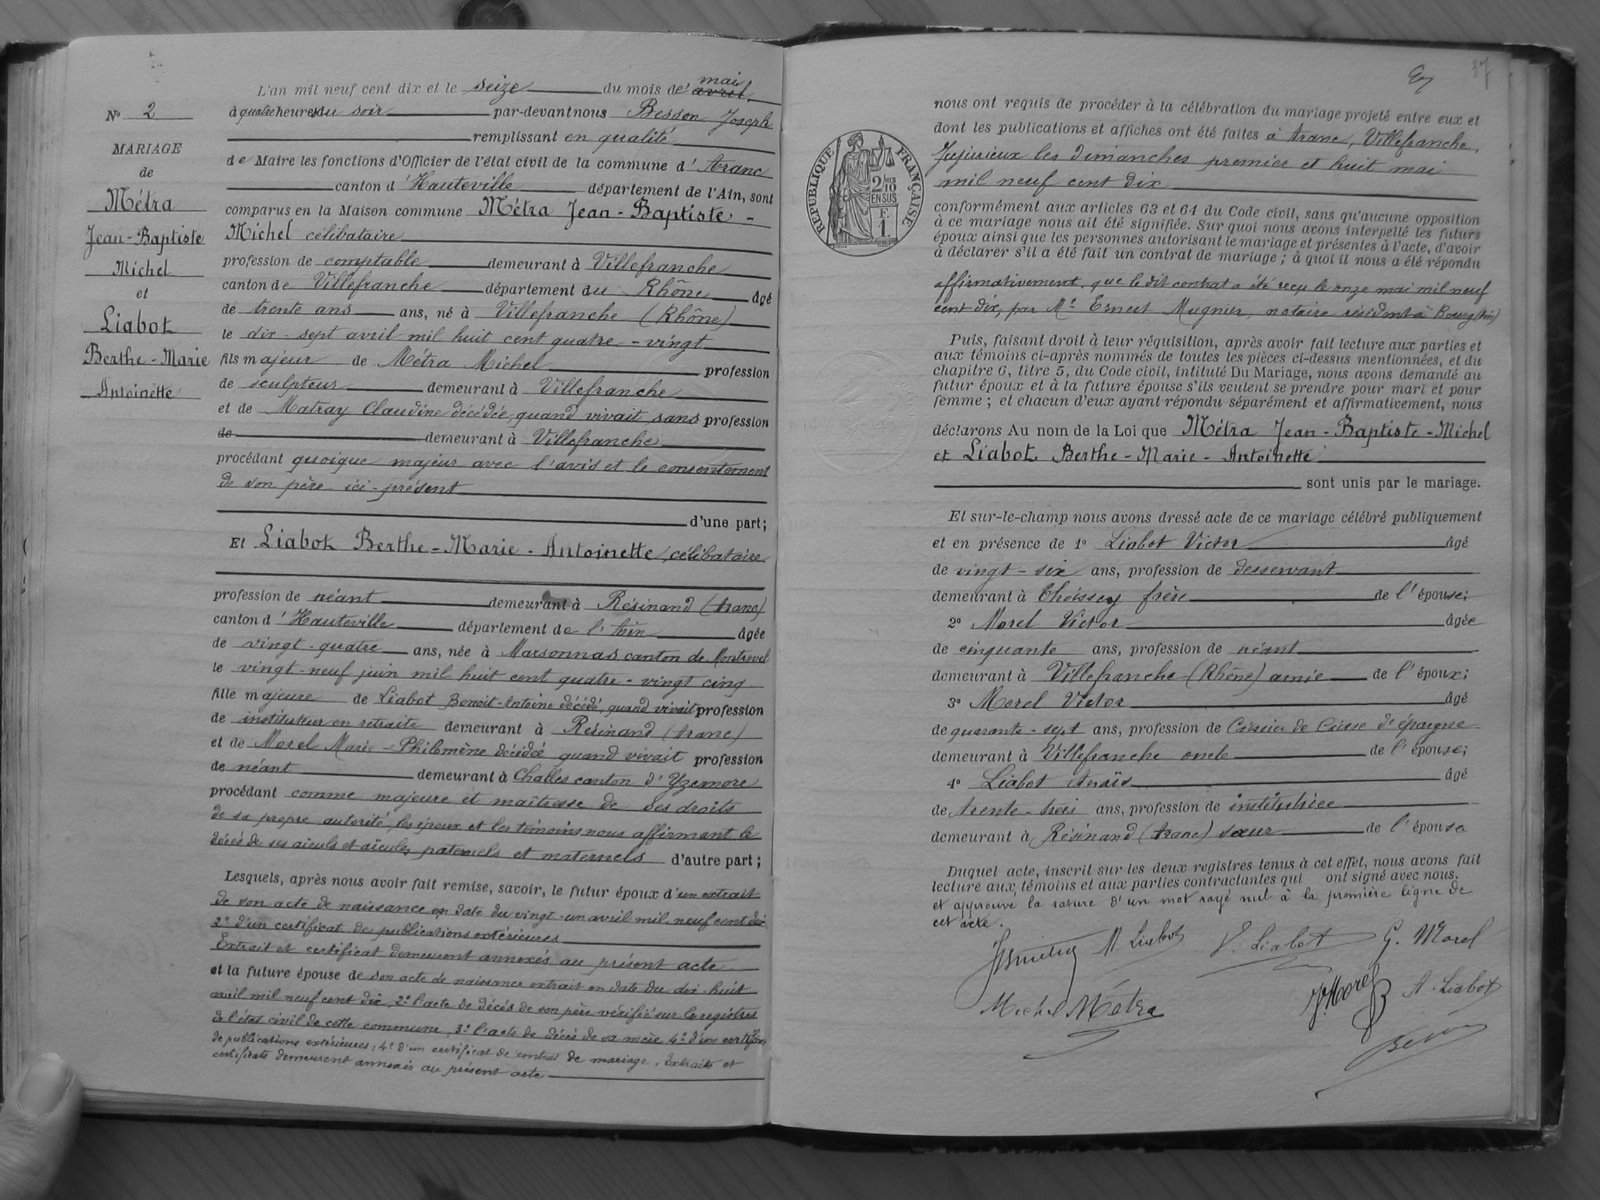 L'an mil neuf cent dix et le seize du mois de mai avril
à quatre heures du soir par-devant nous Besson Joseph
remplissant en qualité
de Maire les fonctions d'Officier de l'état civil de la commune d'Aranc
canton d'Hauteville département de l'Ain, sont
comparus en la Maison commune Métra Jean-Baptiste-
Michel célibataire
profession de comptable demeurant à Villefranche
canton de Villefranche département du Rhône âgé
de trente ans ans, né à Villefranche (Rhône)
le dix-sept avril mil huit cent quatre-vingt
fils majeur de Métra Michel profession
de sculpteur demeurant à Villefranche
et de Matray Claudine décédée, quand vivait, sans profession
de demeurant à Villefranche
procédant quoique majeur avec l'avis et le consentement
de son père ici-présent
d'une part;
Et Liabot Berthe-Marie-Antoinette, célibataire
profession de néant demeurant à Résinand (Aranc)
canton d'Hauteville département de l'Ain âgée
de vingt-quatre ans, née à Marsonnas canton de Montrevel
le vingt-neuf juin mil huit cent quatre-vingt cinq
fille majeure de Liabot Benoit-Antoine décédé, quand vivait profession
de instituteur en retraite demeurant à Résinand (Aranc)
et de Morel Marie-Philomène décédée quand vivait profession
de néant demeurant à Challes canton d'Yzernore
procédant comme majeure et maîtresse de ses droits
de sa propre autorité, les époux et les témoins nous affirmant le
décès de ses aïeuls et aïeules paternels et maternels d'autre part;
Lesquels, après nous avoir fait remise, savoir, le futur époux d'un extrait
de son acte de naissance en date du vingt-un avril mil neuf cent dix
2° d'un certificat de publications extérieures
Extrait et certificat demeurent annexés au présent acte
et la future épouse de son acte de naissance extrait en date du dix-huit
avril mil neuf cent dix, 2° l'acte de décès de son père vérifié sur les registres
de l'état civil de cette commune, 3° l'acte de décès de sa mère 4° d'un certificat
de publications extérieures, 4° d'un certificat de contrat de mariage. Extraits et
certificats demeurent annexés au présent acte
N° 2
MARIAGE
de
Métra
Jean-Baptiste
Michel
et
Liabot
Berthe-Marie
Antoinette
37
RÉPUBLIQUE FRANÇAISE
2/10 EN SUS
F. 1
nous ont requis de procéder à la célébration du mariage projeté entre eux et
dont les publications et affiches ont été faites à Aranc, Villefranche,
Jujurieux les dimanches premier et huit mai
mil neuf cent dix
conformément aux articles 63 et 64 du Code civil, sans qu'aucune opposition
à ce mariage nous ait été signifiée. Sur quoi nous avons interpellé les futurs
époux ainsi que les personnes autorisant le mariage et présentes à l'acte, d'avoir
à déclarer s'il a été fait un contrat de mariage; à quoi il nous a été répondu
affirmativement, que le dit contrat a été reçu le onze mai mil neuf
cent dix, par Me Ernest Mugnier, notaire résident à Bourg (Ain)
Puis, faisant droit à leur réquisition, après avoir fait lecture aux parties et
aux témoins ci-après nommés de toutes les pièces ci-dessus mentionnées, et du
chapitre 6, titre 5, du Code civil, intitulé Du Mariage, nous avons demandé au
futur époux et à la future épouse s'ils veulent se prendre pour mari et pour
femme; et chacun d'eux ayant répondu séparément et affirmativement, nous
déclarons Au nom de la Loi que Métra Jean-Baptiste-Michel
et Liabot Berthe-Marie-Antoinette
sont unis par le mariage.
Et sur-le-champ nous avons dressé acte de ce mariage célébré publiquement
et en présence de 1° Liabot Victor âgé
de vingt-six ans, profession de desservant
demeurant à frère de l'épouse;
2° Morel Victor âgée
de cinquante ans, profession de néant
demeurant à Villefranche (Rhône) amie de l'époux;
3° Morel Victor âgé
de quarante-sept ans, profession de Caissier de Caisse d'épargne
demeurant à Villefranche oncle de l'épouse;
4° Liabot Anaïs âgé
de trente-trois ans, profession de institutrice
demeurant à Résinand (Aranc) sœur de l'épouse
Duquel acte, inscrit sur les deux registres tenus à cet effet, nous avons fait
lecture aux témoins et aux parties contractantes qui ont signé avec nous.
et approuvé la rature d'un mot rayé nul à la première ligne de
cet acte.
Liabot V. Liabot G. Morel
Michel Métra V. Morel A. Liabot